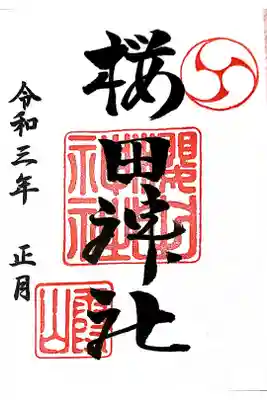 桜田神社
令和三年 正月
櫻田神社
霞山